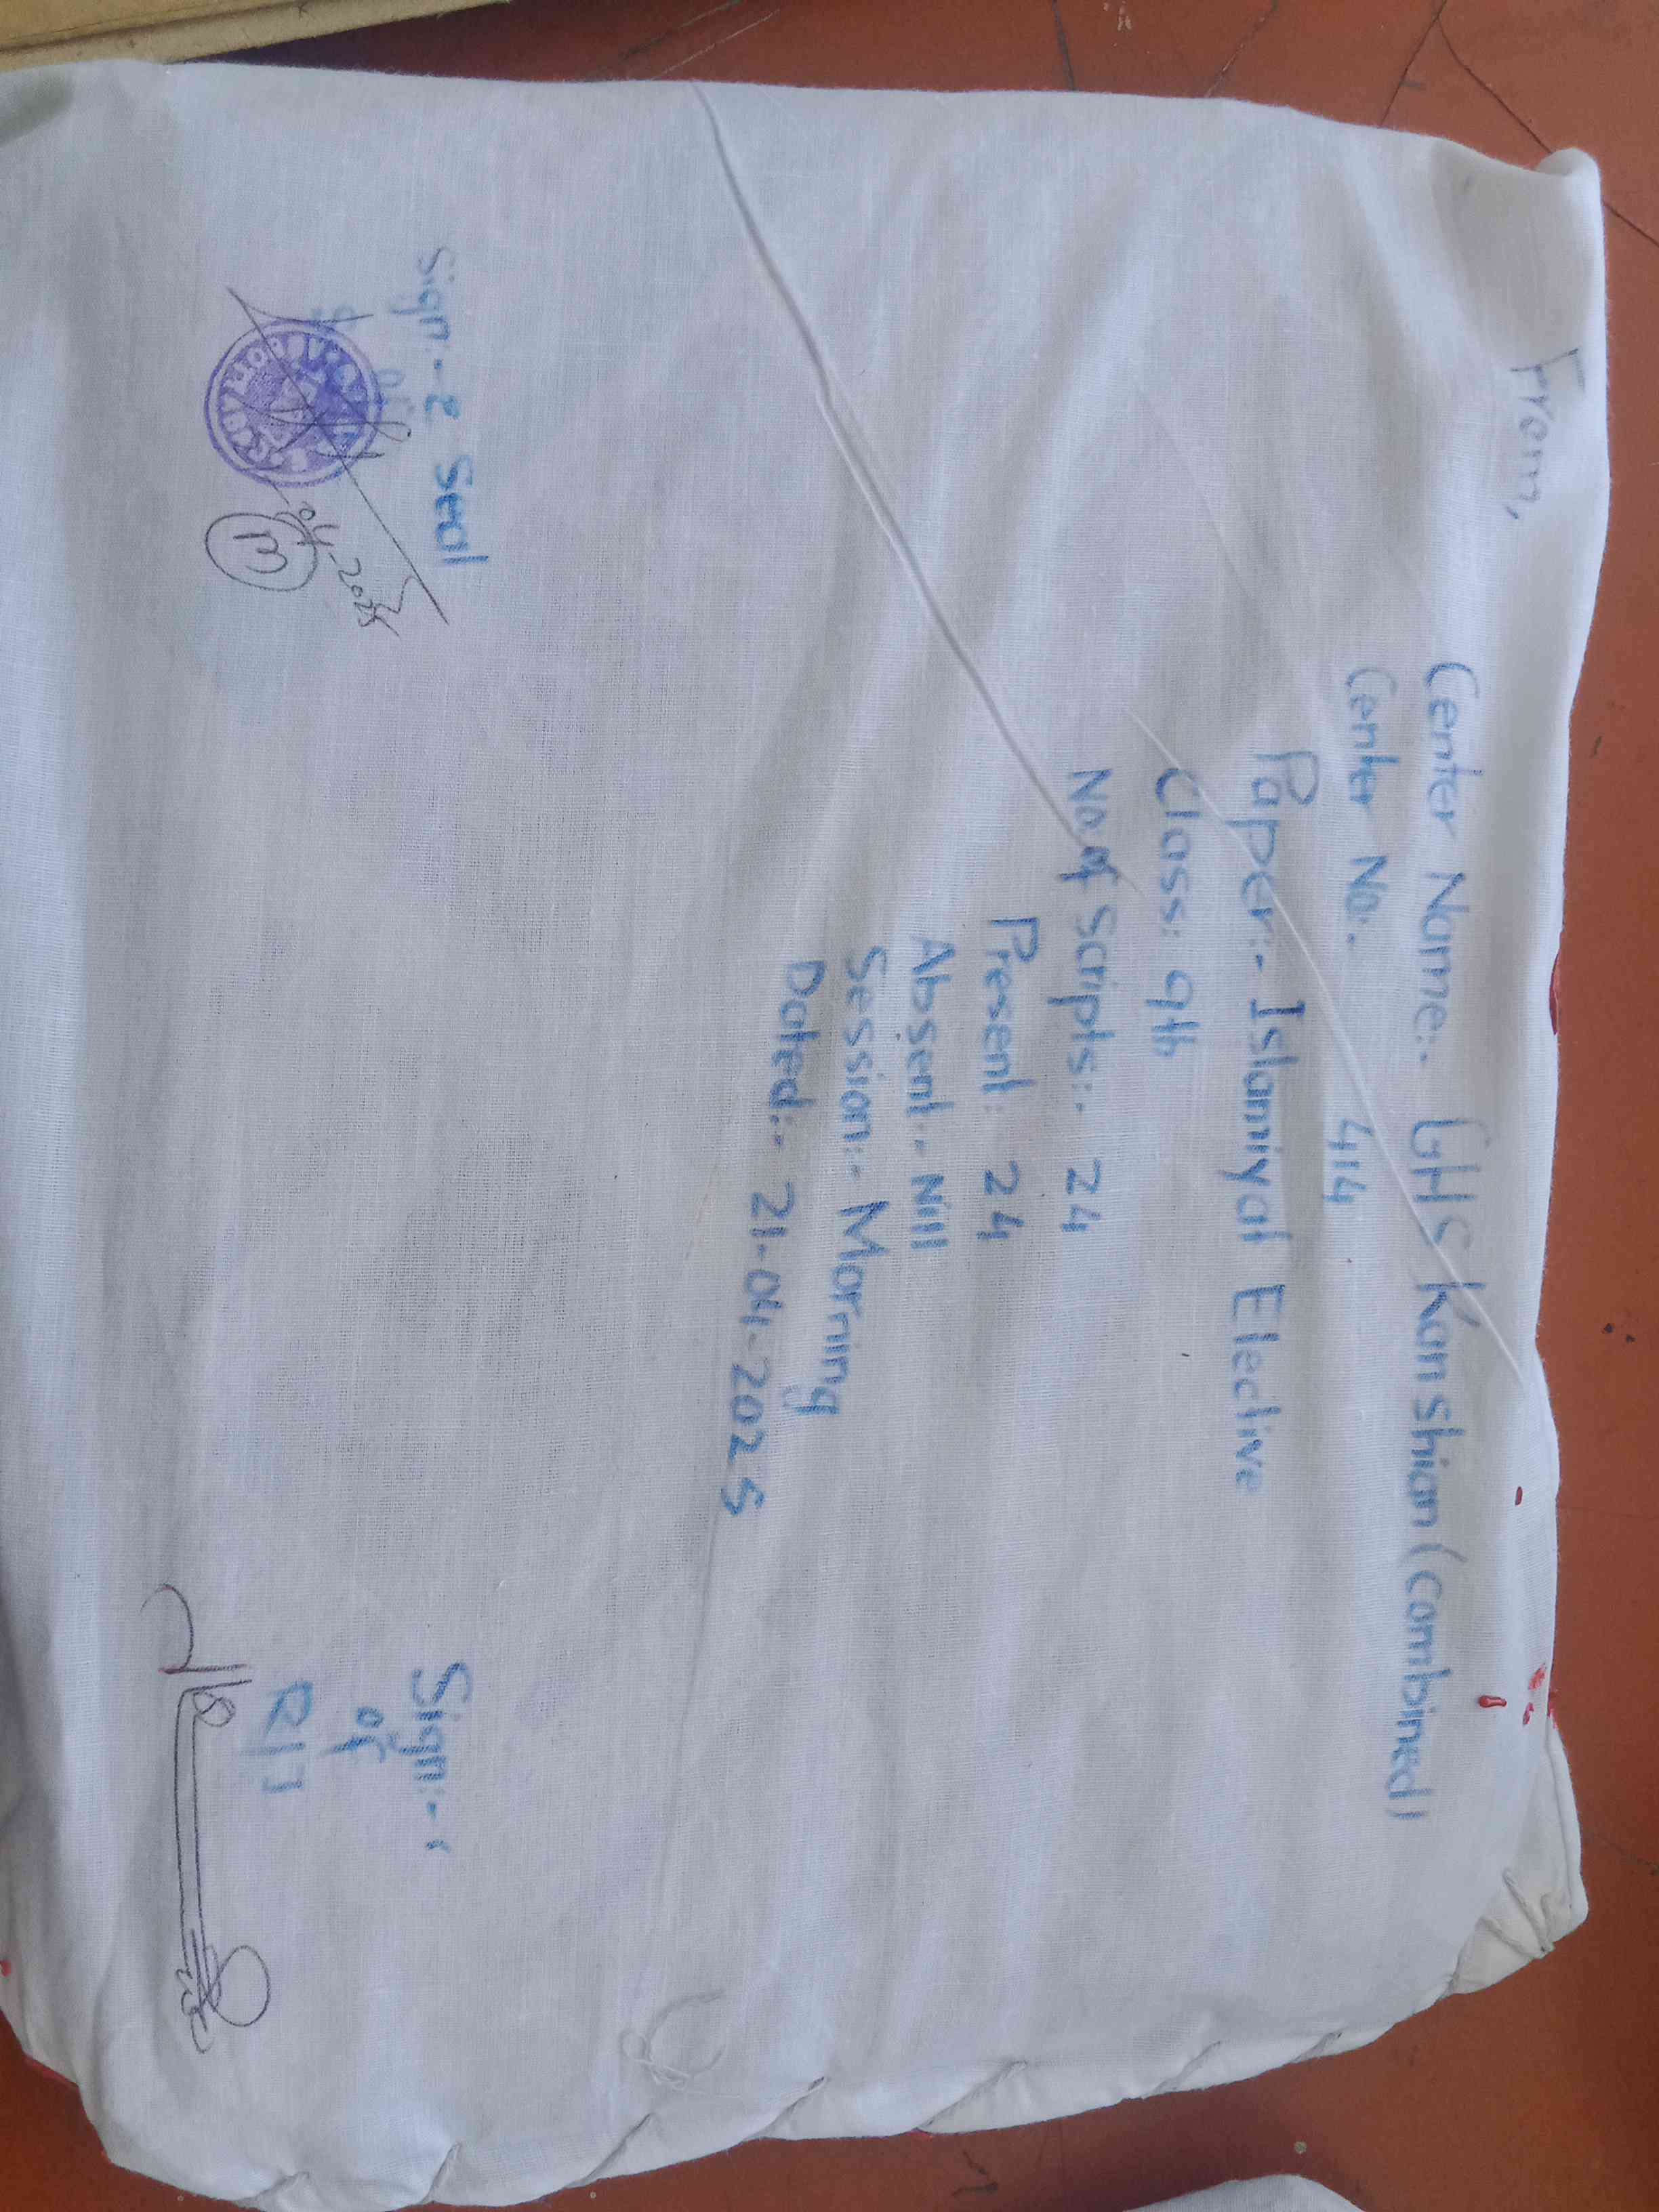 From,
Center Name:- GHS Kanshian (Combined)
Center No. 414
Paper:- Islamiyat Elective
Class: 9th
No. of Scripts:- 24
Present: 24
Absent:- Nill
Session:- Morning
Dated:- 21-04-2025
Sign:- & Seal
of
Sign:-
of
R/I